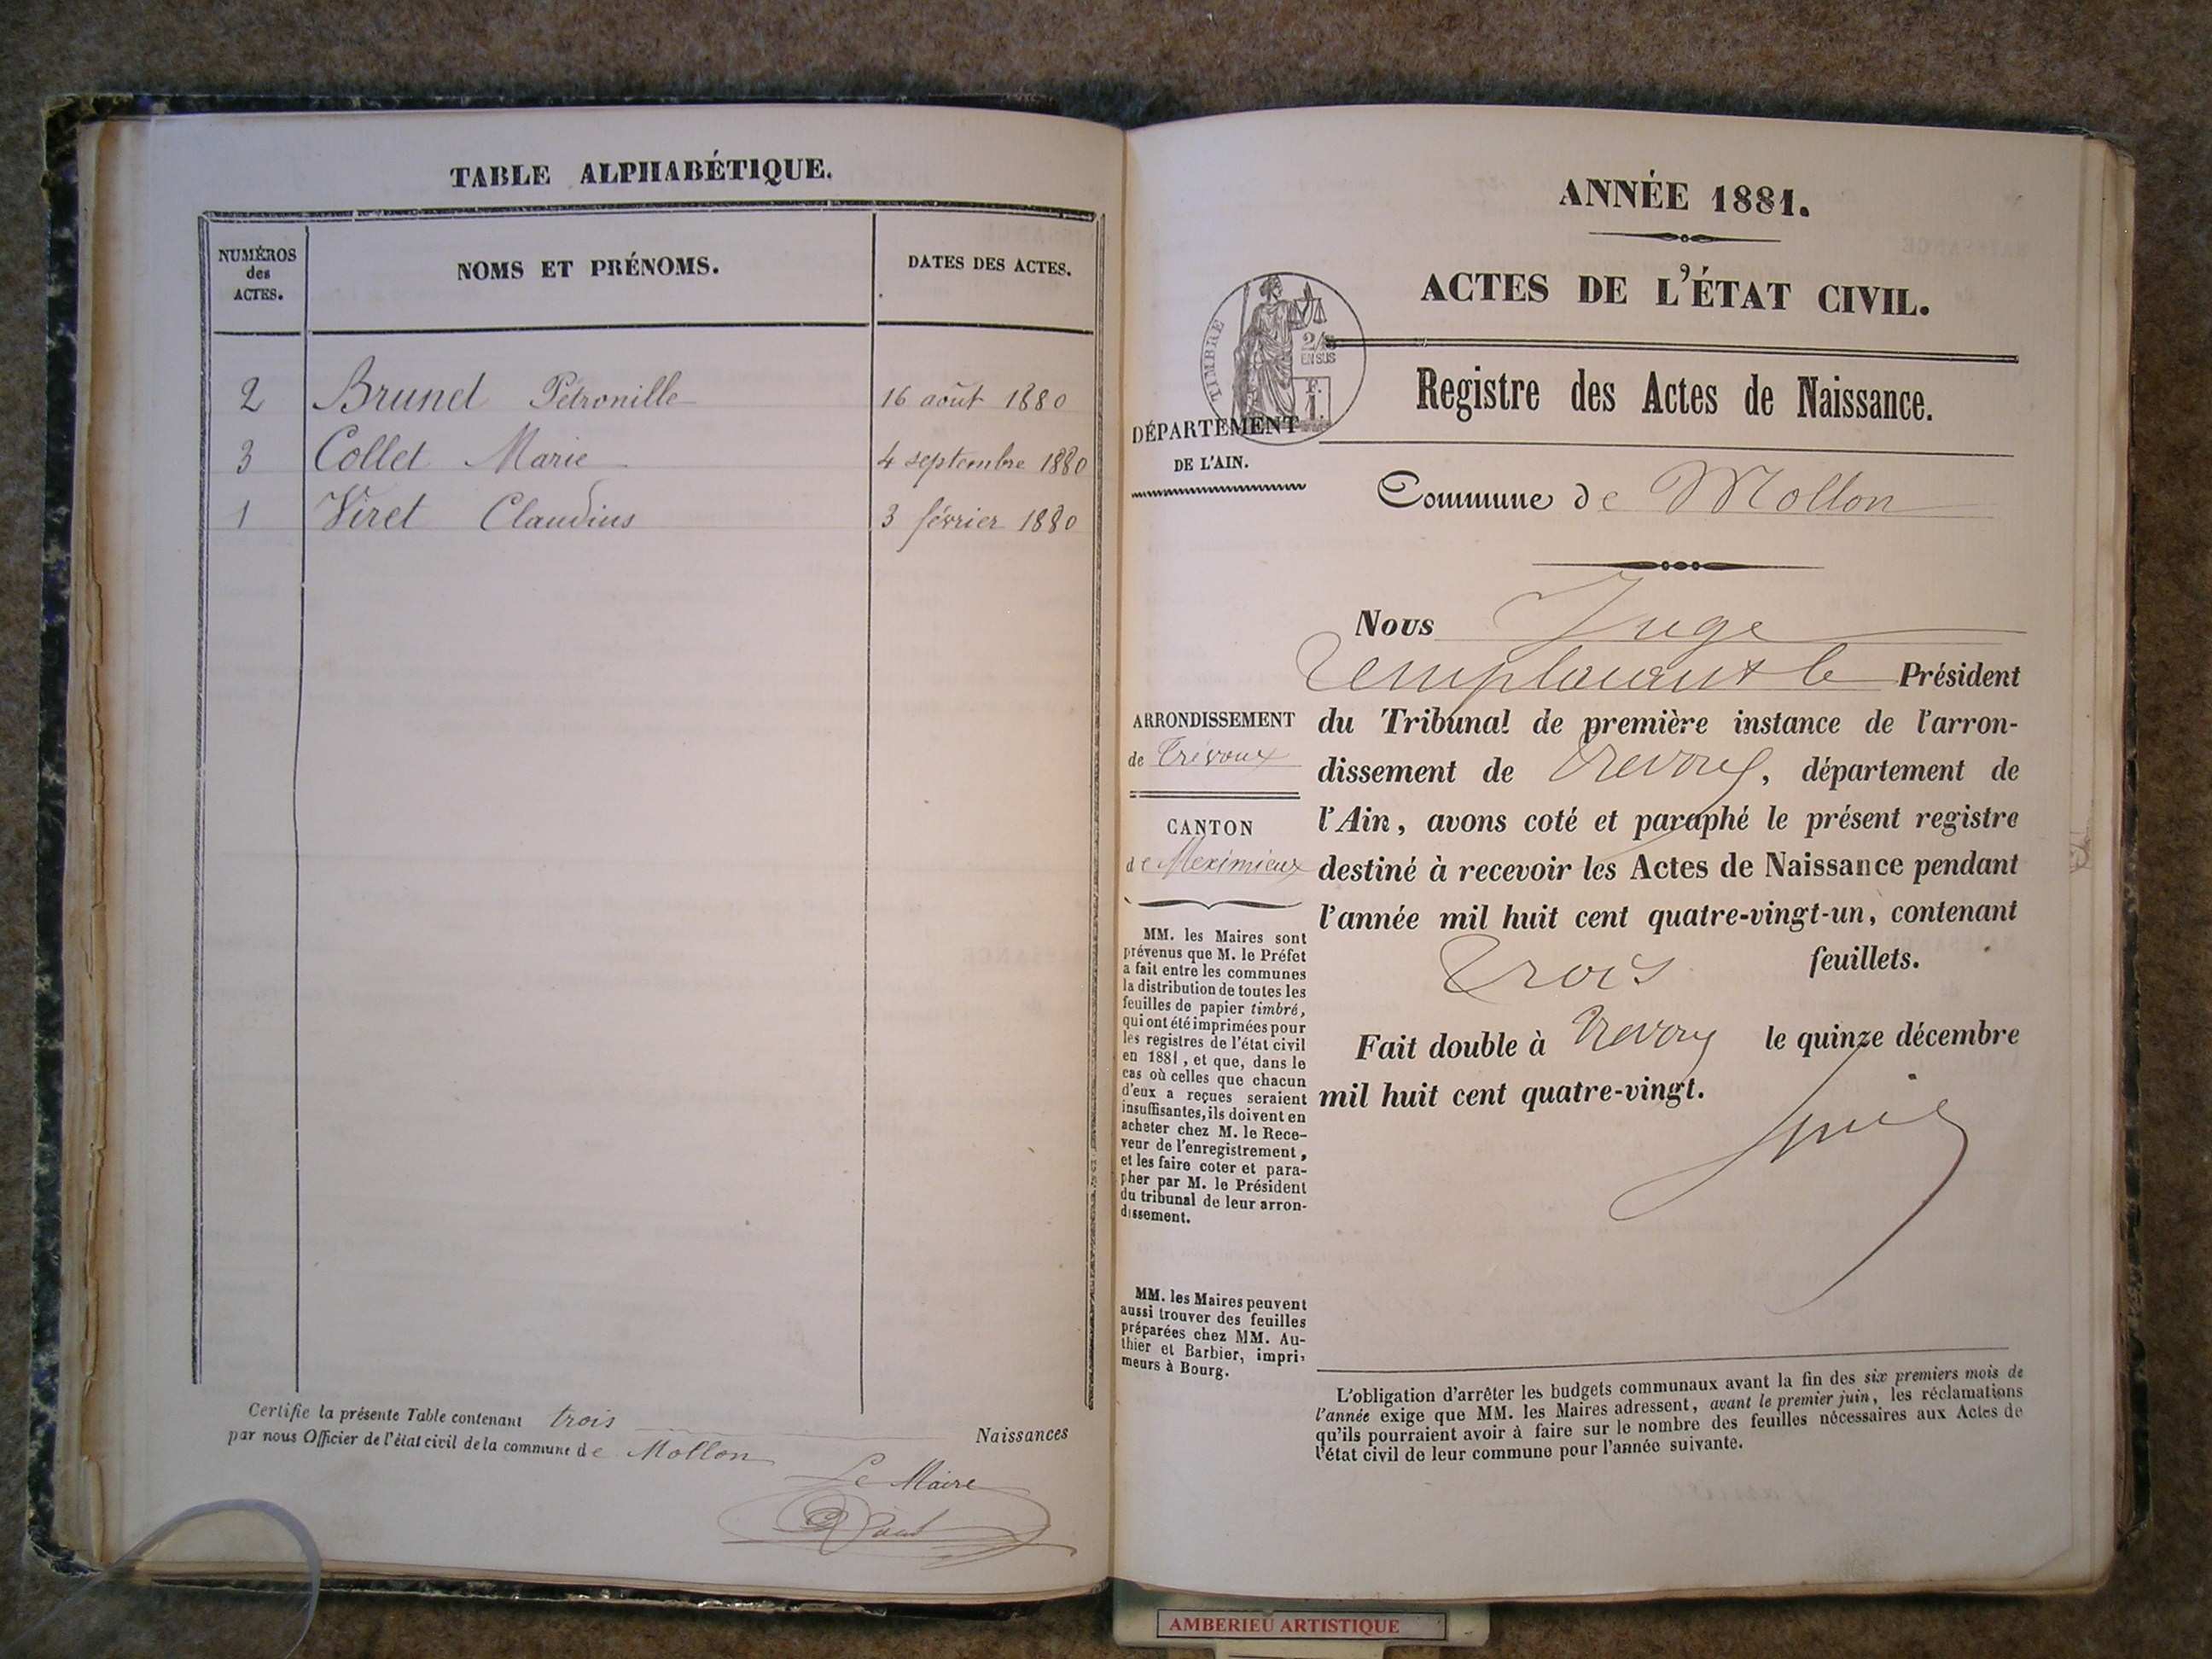 TABLE ALPHABÉTIQUE.
NUMÉROS
des
ACTES.
NOMS ET PRÉNOMS.
DATES DES ACTES.
2 Brunet Pétronille 16 août 1880
3 Collet Marie 4 septembre 1880
1 Viret Claudius 3 février 1880
Certifie la présente Table contenant trois Naissances
par nous Officier de l'état civil de la commune de Mollon
Le Maire
ANNÉE 1881.
ACTES DE L'ÉTAT CIVIL.
TIMBRE
2/10
EN SUS
F.
1.
Registre des Actes de Naissance.
DÉPARTEMENT
DE L'AIN.
Commune de Mollon
ARRONDISSEMENT
de Trévoux
CANTON
de Meximieux
MM. les Maires sont
prévenus que M. le Préfet
a fait entre les communes
la distribution de toutes les
feuilles de papier timbré,
qui ont été imprimées pour
les registres de l'état civil
en 1881, et que, dans le
cas où celles que chacun
d'eux a reçues seraient
insuffisantes, ils doivent en
acheter chez M. le Rece-
veur de l'enregistrement,
et les faire coter et para-
pher par M. le Président
du tribunal de leur arron-
dissement.
MM. les Maires peuvent
aussi trouver des feuilles
préparées chez MM. Au-
thier et Barbier, impri-
meurs à Bourg.
Nous Juge
remplaçant le Président
du Tribunal de première instance de l'arron-
dissement de Trevoux, département de
l'Ain, avons coté et paraphé le présent registre
destiné à recevoir les Actes de Naissance pendant
l'année mil huit cent quatre-vingt-un, contenant
trois feuillets.
Fait double à Trevoux le quinze décembre
mil huit cent quatre-vingt.
L'obligation d'arrêter les budgets communaux avant la fin des six premiers mois de
l'année exige que MM. les Maires adressent, avant le premier juin, les réclamations
qu'ils pourraient avoir à faire sur le nombre des feuilles nécessaires aux Actes de
l'état civil de leur commune pour l'année suivante.
AMBERIEU ARTISTIQUE